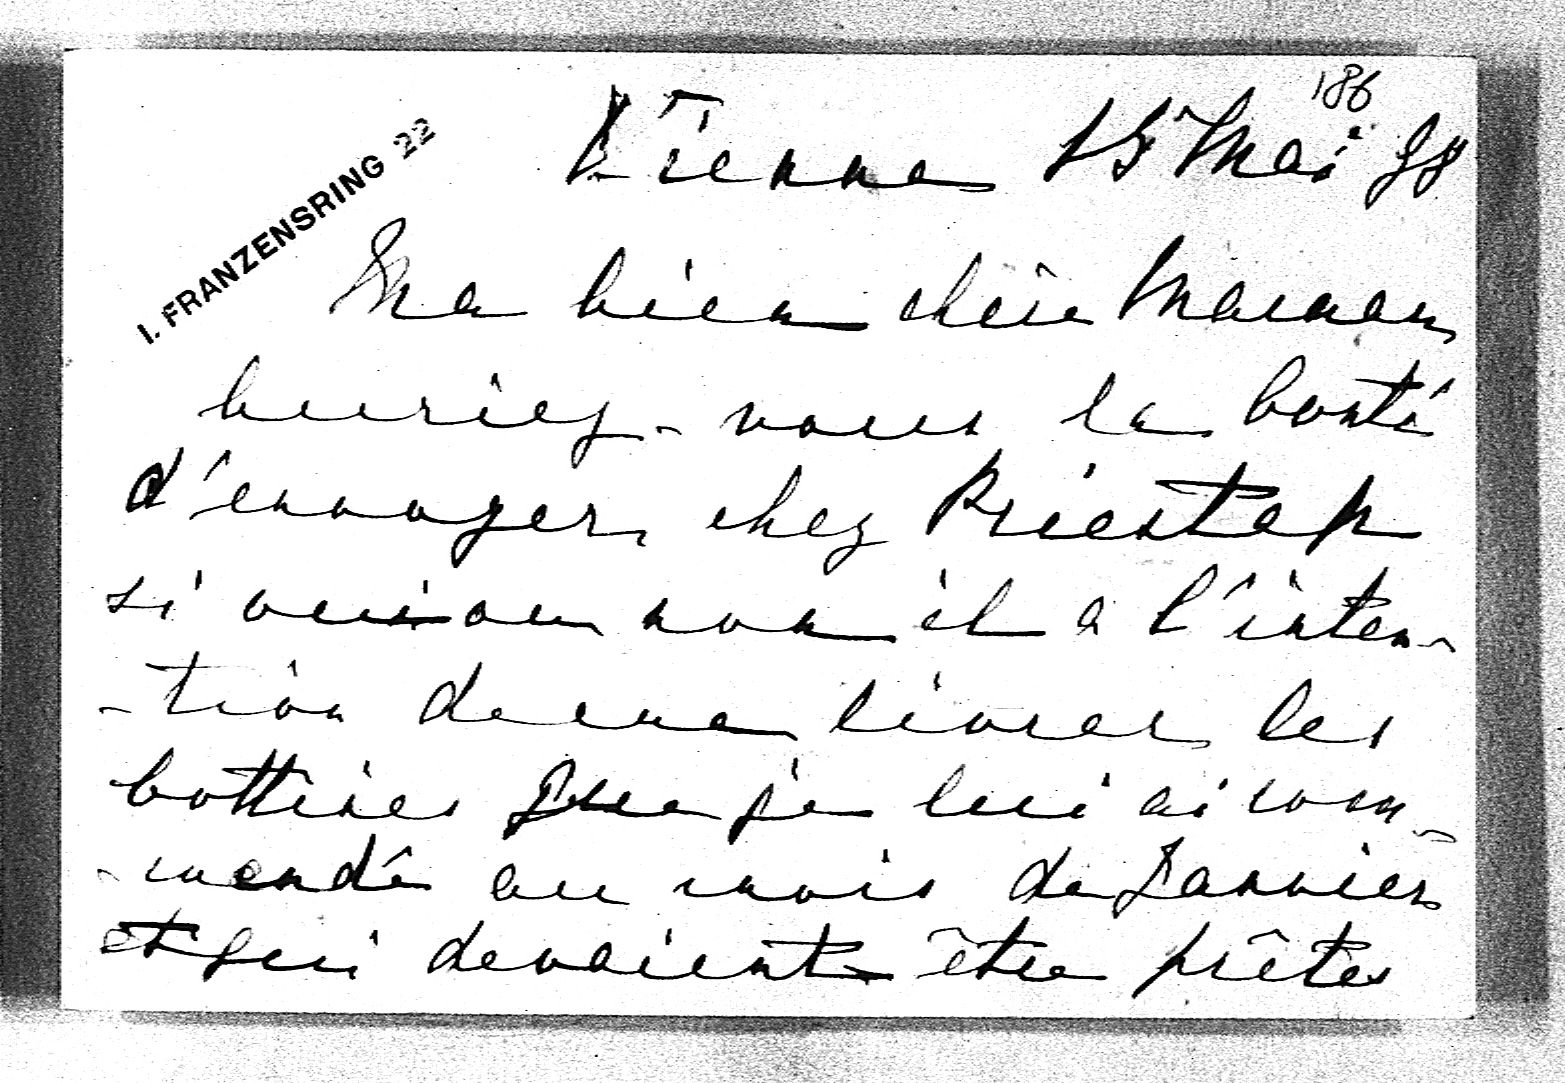 186
I. FRANZENSRING 22
Vienne 15 Mai 98
Ma bien chère Maman
auriez-vous la bonté
d'envoyer chez
si oui ou non il a l'inten-
-tion de me livrer les
bottines que je lui ai com-
-mandé au mois de Janvier
et qui devaient être prêtes